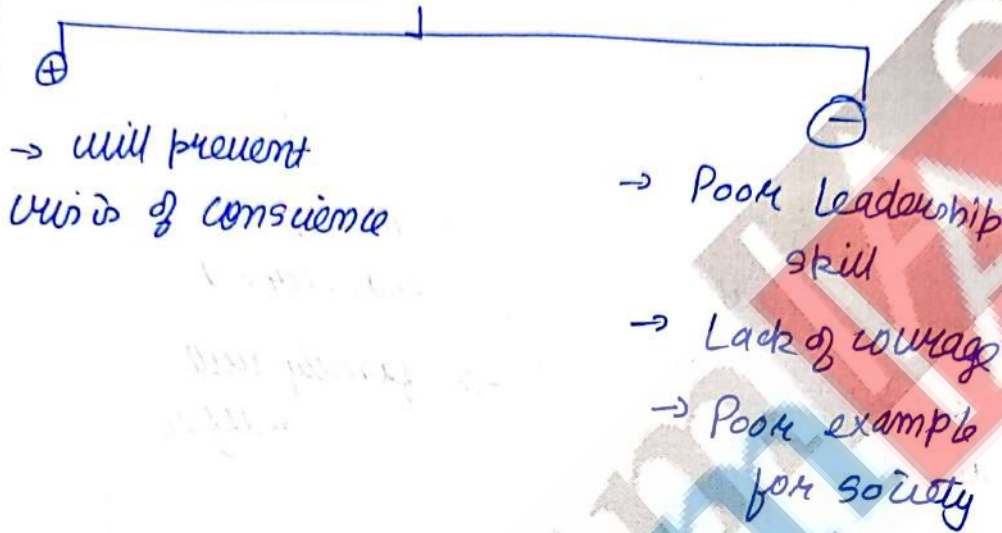 ⊕
⊖
→ will prevent
crisis of conscience
→ Poor Leadership
skill
→ Lack of courage
→ Poor example
for society